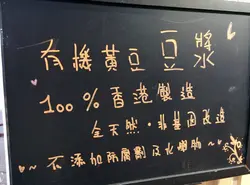 有機黃豆豆漿
100%香港製造
全天然·非基因改造
~不添加防腐劑及水樹物~